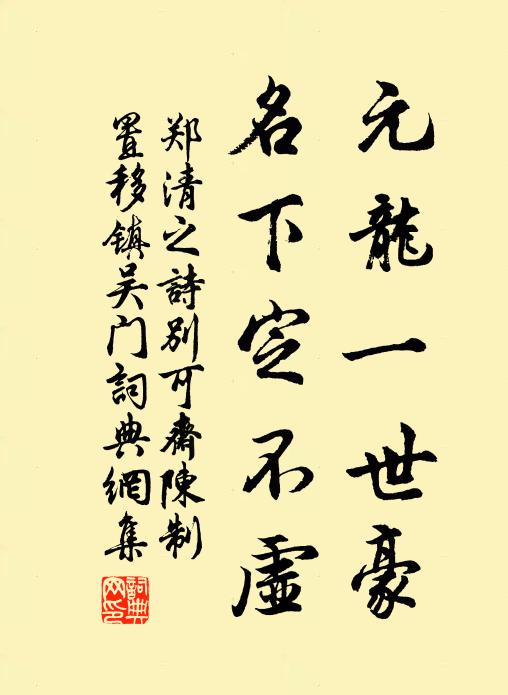 元龍一世豪
名下定不虛
郑清之詩别可齋陳制
置移鎮吴门詞典網集
詞典网印